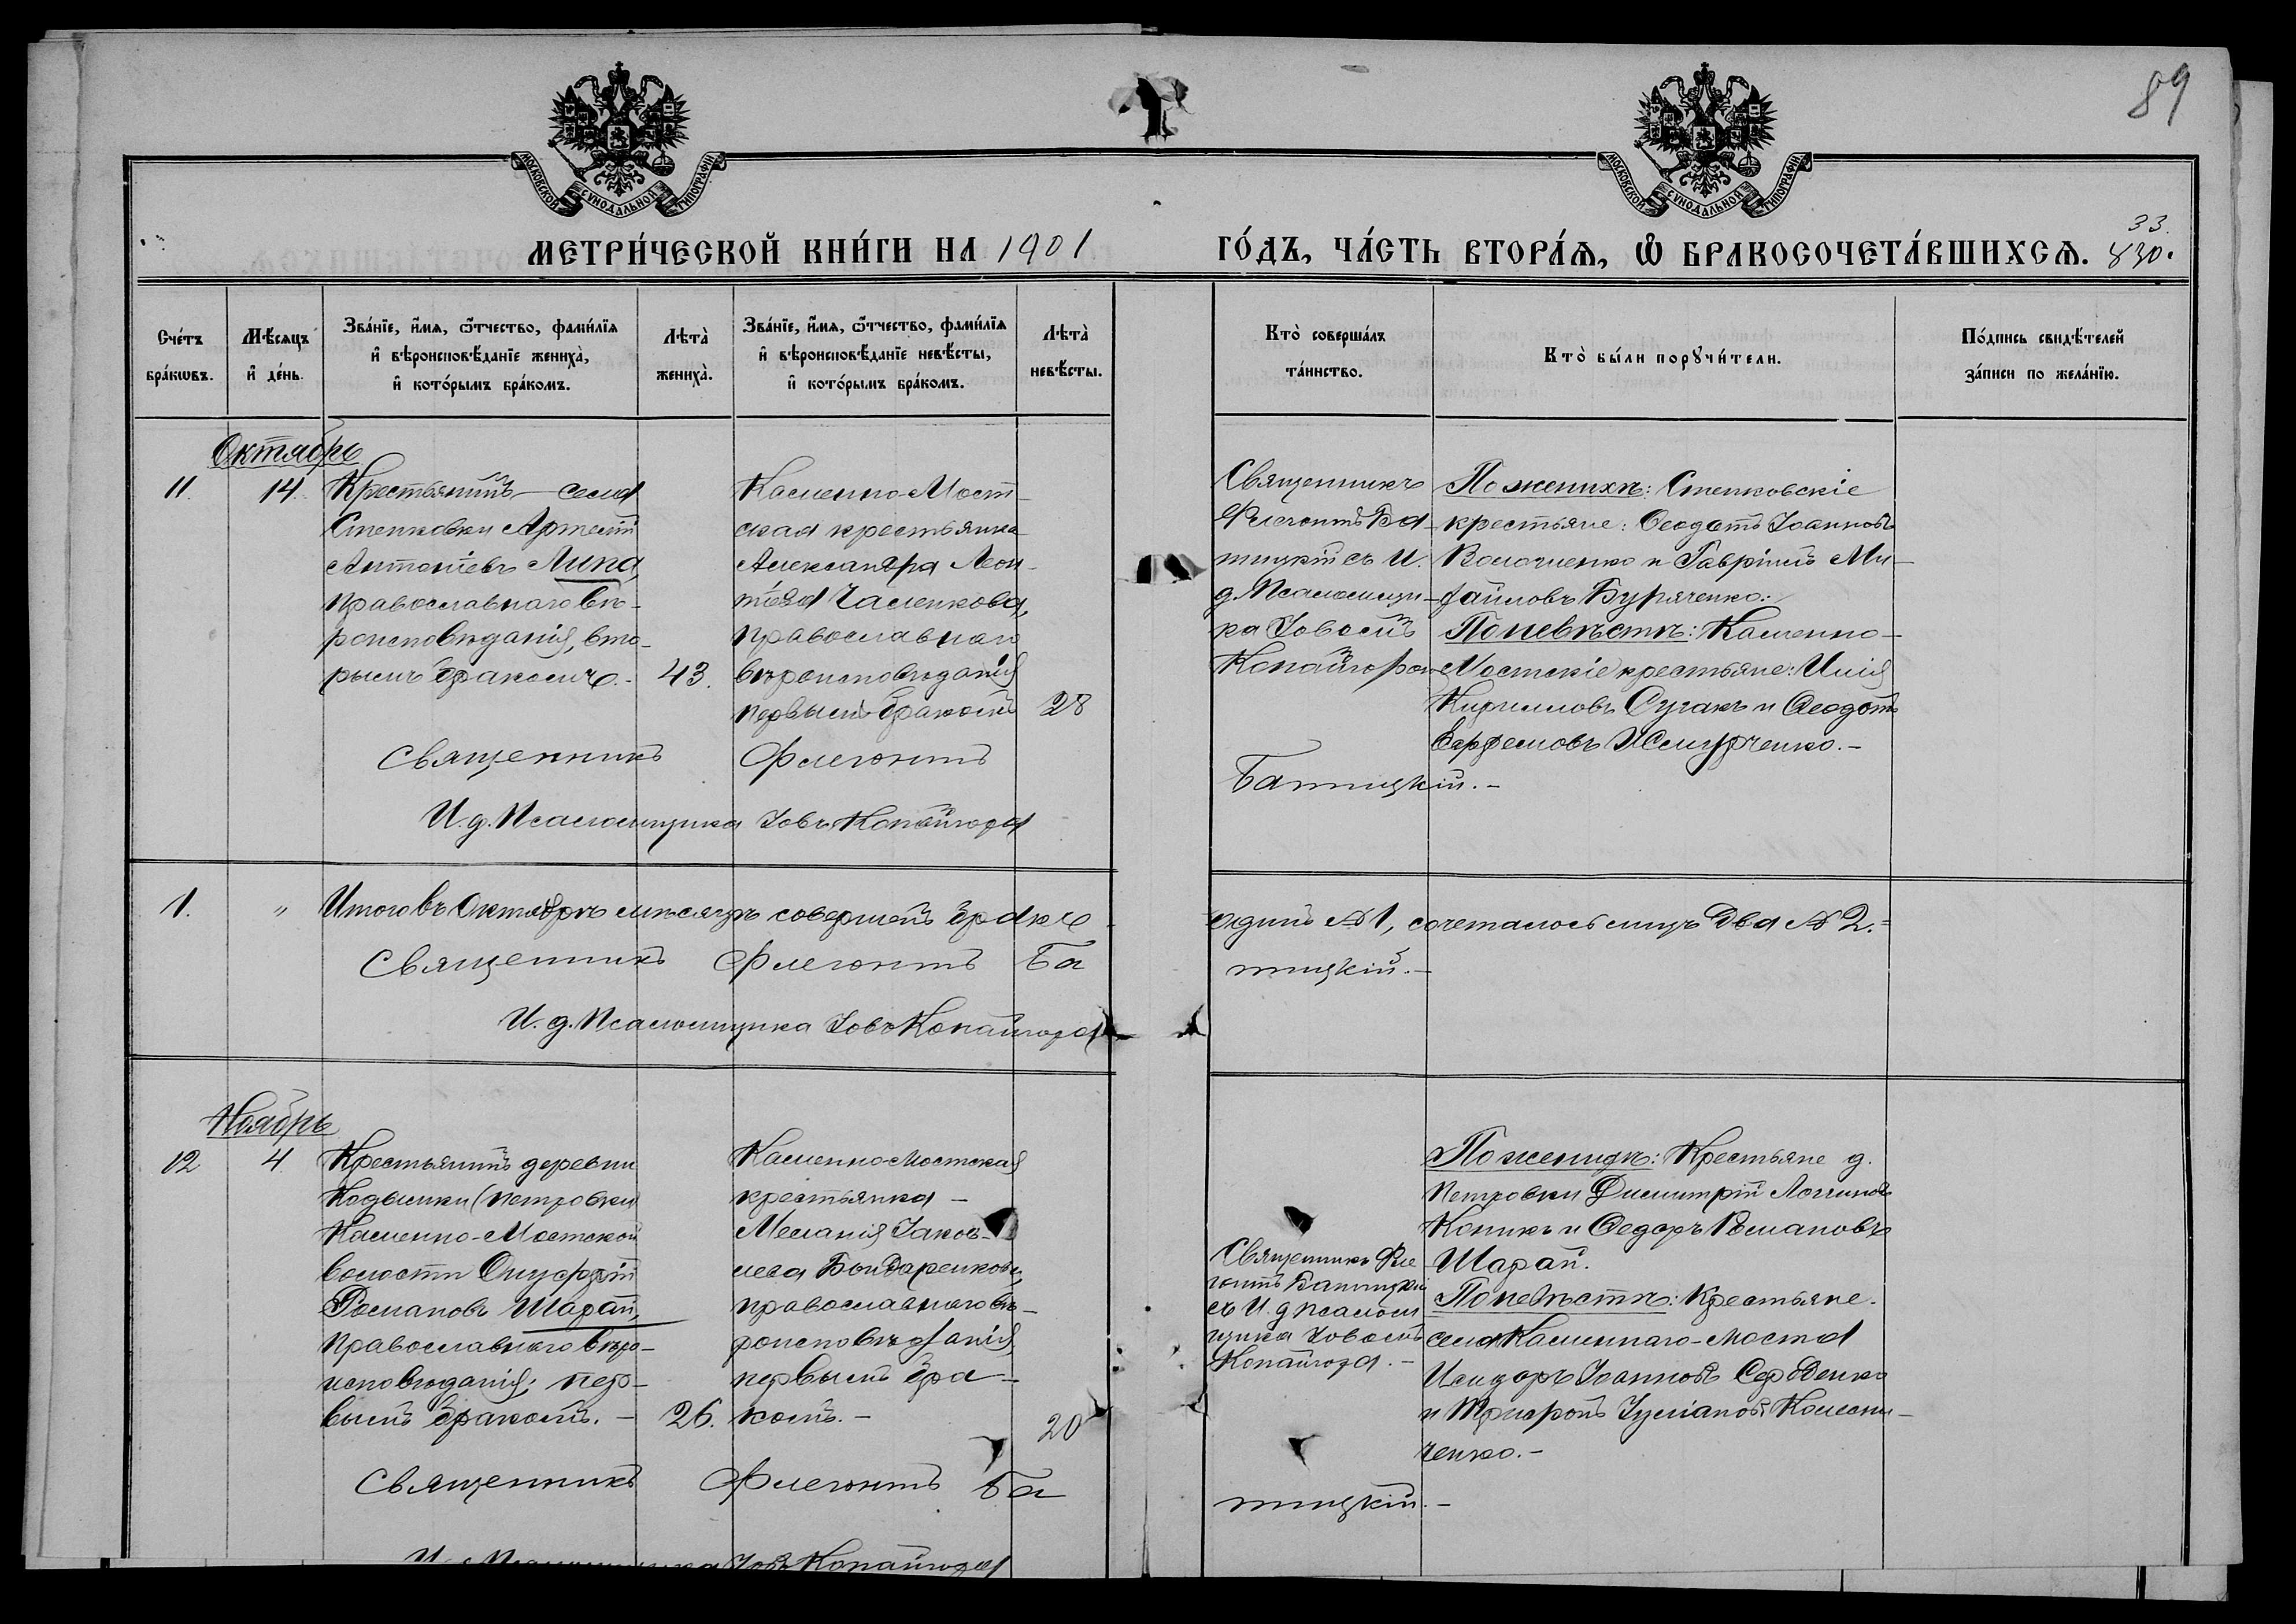 89
МОСКОВСКОЙ СѴНОДАЛЬНОЙ ТИПОГРАФІИ
МОСКОВСКОЙ СѴНОДАЛЬНОЙ ТИПОГРАФІИ
МЕТРИ́ЧЕСКОЙ КНИ́ГИ НА 1901
ГО́ДЪ, ЧА́СТЬ ВТОРА́Ѧ, Ѽ БРАКОСОЧЕТА́ВШИХСѦ.
33.
830.
Сче́тъ бра́кѡвъ.
Мѣ́сѧцъ и҆ де́нь.
Зва́нїе, и҆́мѧ, ѻ҆́тчество, фами́лїѧ и҆ вѣроисповѣ́данїе жениха̀, и҆ кото́рымъ бра́комъ.
Лѣта̀ жениха̀.
Зва́нїе, и҆́мѧ, ѻ҆́тчество, фами́лїѧ и҆ вѣроисповѣ́данїе невѣ́сты, и҆ кото́рымъ бра́комъ.
Лѣта̀ невѣ́сты.
Кто̀ соверша́лъ та́инство.
Кто̀ бы́ли порꙋчи́тели.
По́дпись свидѣ́телей за́писи по жела́нїю.
Октябрь
11.
14.
Крестьянинъ — села
Степковки Артемій
Антоніевъ Липа,
православнаго вѣ-
роисповѣданія, вто-
рымъ бракомъ.-
43.
Каменно-Мост-
ская крестьянка
Александра Леон-
тіева Чаленкова,
православнаго
вѣроисповѣданія
первымъ бракомъ
28
Священникъ
Флегонтъ Ба-
тицкій съ И.
д. Псаломщи-
ка Іовомъ
Копайгора
По женихѣ: Степковскіе
крестьяне: Ѳеодотъ Іоанновъ
Волошенко и Гавріилъ Ми-
хайловъ Буряченко.
По невѣстѣ: Каменно-
Мостскіе крестьяне: Илія
Кирилловъ Сугакъ и Ѳеодотъ
Священникъ Флегонтъ Батицкій.-
И. д. Псаломщика Іовъ Копайгора
1.
"
Итого въ Октябрѣ мѣсяцѣ совершенъ бракъ одинъ № 1, сочеталось лицъ два № 2.=
Священникъ Флегонтъ Батицкій.-
И. д. Псаломщика Іовъ Копайгора
Ноябрь
12
4.
Крестьянинъ деревни
Кодымки (Петровки
Каменно-Мостской
волости Онуфрій
Романовъ Шарай,
православнаго вѣро-
исповѣданія, пер-
вымъ бракомъ. -
26.
Каменно-Мостская
крестьянка -
Меланія Іаков-
лева Бондаренкова,
православнаго вѣ-
роисповѣданія,
первымъ бра-
комъ.-
20
Священникъ Фле
гонтъ Батицкій
съ И. д псалом
щика Іовомъ
Копайгора.-
По женихѣ: Крестьяне д.
Петровки Димитрій Логгиновъ
Коникъ и Ѳедоръ Романовъ
Шарай.
По невѣстѣ: Крестьяне.
села Каменнаго-Моста
Исидоръ Іоанновъ Сердденко
и Трифонъ Іуліановъ Колесни-
ченко.-
Священникъ Флегонтъ Батицкій.-
Іовъ Копайгора